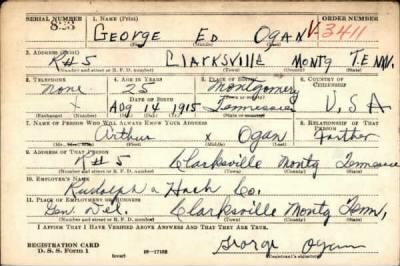 SERIAL NUMBER 1. NAME (Print) ORDER NUMBER
823 GEORGE ED OGAN V3411
2. ADDRESS (Print)
R#5 CLARKSVILLE MONTG TENN.
(Number and street or R. F. D. number) (Town) (County) (State)
3. TELEPHONE 4. AGE IN YEARS 5. PLACE OF BIRTH 6. COUNTRY OF CITIZENSHIP
None 25 Montgomery
DATE OF BIRTH
X Aug 14 1915 Tennessee U.S.A
7. NAME OF PERSON WHO WILL ALWAYS KNOW YOUR ADDRESS 8. RELATIONSHIP OF THAT PERSON
Arthur x Ogan Father
9. ADDRESS OF THAT PERSON
R#5 Clarksville Montg Tennessee
(Number and street or R. F. D. number) (Town) (County) (State)
10. EMPLOYER'S NAME
Rudolph a Hach Co.
11. PLACE OF EMPLOYMENT OR BUSINESS
Gen Del. Clarksville Montg Tenn,
(Number and street or R. F. D. number) (Town) (County) (State)
I AFFIRM THAT I HAVE VERIFIED ABOVE ANSWERS AND THAT THEY ARE TRUE.
George Ogan
REGISTRATION CARD
D. S. S. Form 1 (Registrant's signature)